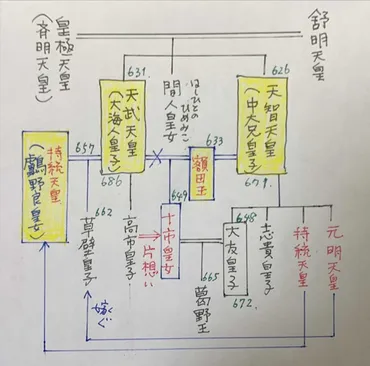 舒明天皇
皇極天皇
(斉明天皇)
626
天智天皇
(中大兄皇子)
671
間人皇女
はしひとのひめみこ
631
天武天皇
(大海人皇子)
686
633
額田王
657
持統天皇
(鸕野良皇女)
元明天皇
持統天皇
志貴皇子
648
大友皇子
672
649
十市皇女
665
葛野王
片想い
高市皇子
662
草壁皇子
嫁ぐ